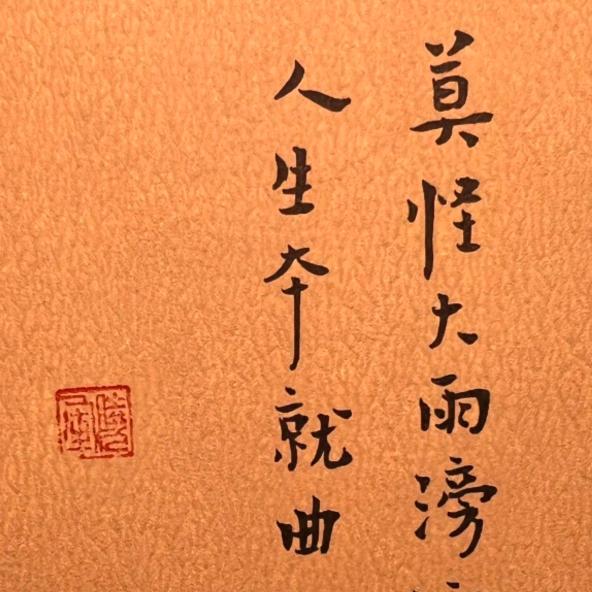 莫怪大雨滂
人生本就曲